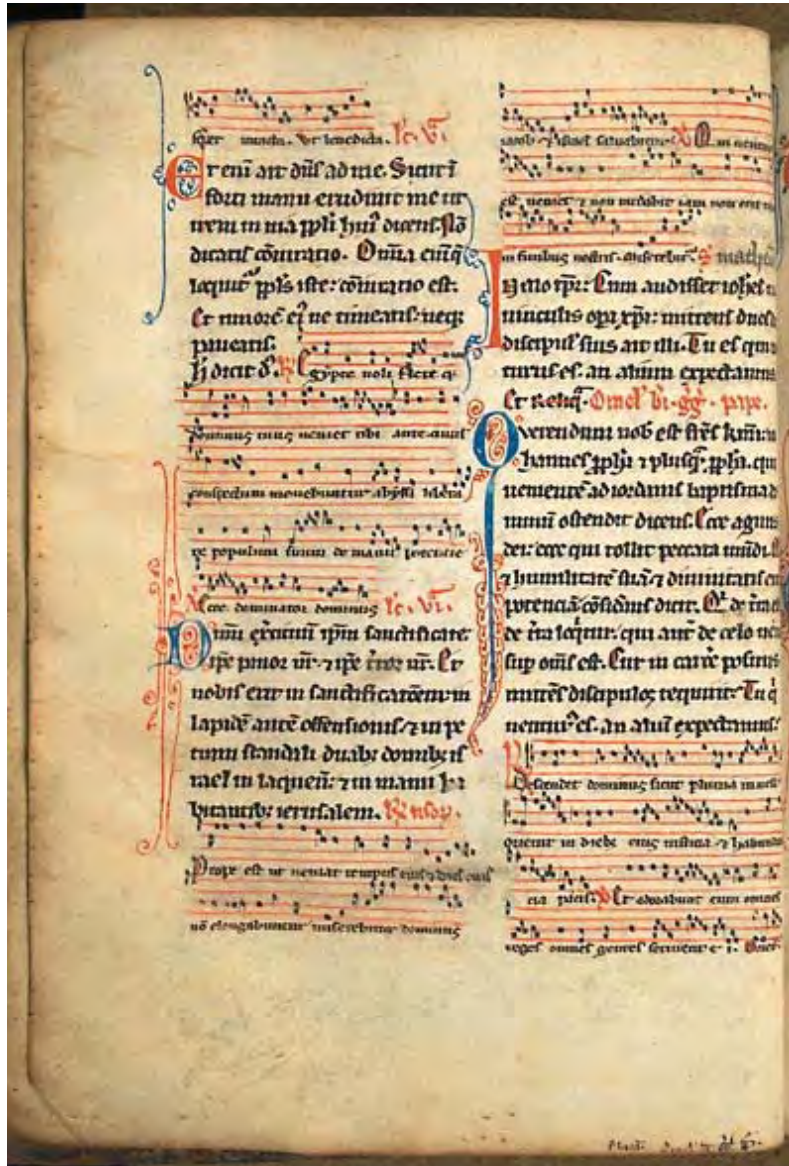 sp̄er intacta. Vt benedicta. lc̄. v̄.
Et eni᷒ ait dn̄s ad me. Sicut ī
forti manu erudiuit me ut
irem in uia ppl̄i hui᷒ dicens. Nō
dicatis cōiuratio. Omīa eni᷒ q̄
loquit᷒ ppl̄s iste: cōiuratio est.
Et timorē ei᷒ ne timeatis: neqꝫ
paueatis.
h̄ dicit d̄. R̄ Egypte noli flere q̄
dominus tuus ueniet tibi ante cuius
conspectum mouebuntur abyssi libera
re populum suum de manu potencie
V̄ Ecce dominator dominus lc̄. vı.
Dn̄m exercituū ip̄m sanctificate:
ip̄e pauor ur̄. ⁊ ip̄e t̄ror ur̄. Et
nobis erit in sanctificatōem: in
lapidē autē offensionis. ⁊ in pe
tram scandali duabꝫ domibꝫ is
rael in laqueū: ⁊ in ruinā ha
bitantibꝫ ierusalem.
Prope est ut ueniat tempus eius ⁊ dies eius
nō elongabuntur miserebitur dominus
iacob ⁊ israel saluabitur. Qui uenturus
est ueniet ⁊ non tardabit iam non erit
in finibus nostris. miserebit᷒. S̄ matheū
In illo tp̄r: Cum audisset ioh̄es in
uinculis opa xp̄i: mittens duos d̄
discipul᷒ suis ait illi. Tu es qui uē
turus es. an alium expectamus
Et reliq̄. Omel᷒ bi. gḡ. pape.
Querendum nob̄ est fr̄es kmi᷒ io
hannes pph̄a ⁊ plusq̄ pph̄a. qui
uenientē ad iordanis baptisma d
minū ostendit dicens. Ecce agnus
dei: ecce qui tollit peccata mūdi.
⁊ humilitatē suā ⁊ diuinitatis ei᷒
potenciā cōsid̄ans dicit. Q̄ de t̄ra est
de t̄ra loquit᷒. qui aut᷒ de celo uen
sup om̄s est. Cur in carc̄e positus
mittēs discipulos requirit. Tu q̄
uentur᷒ es. an aliū expectamus.
R̄ Descendet dominus sicut pluuia in uell᷒
orietur in diebꝫ eius iusticia ⁊ habundan
cia pacis. V̄ Et adorabunt eum omnes
reges omnes gentes seruient e i.